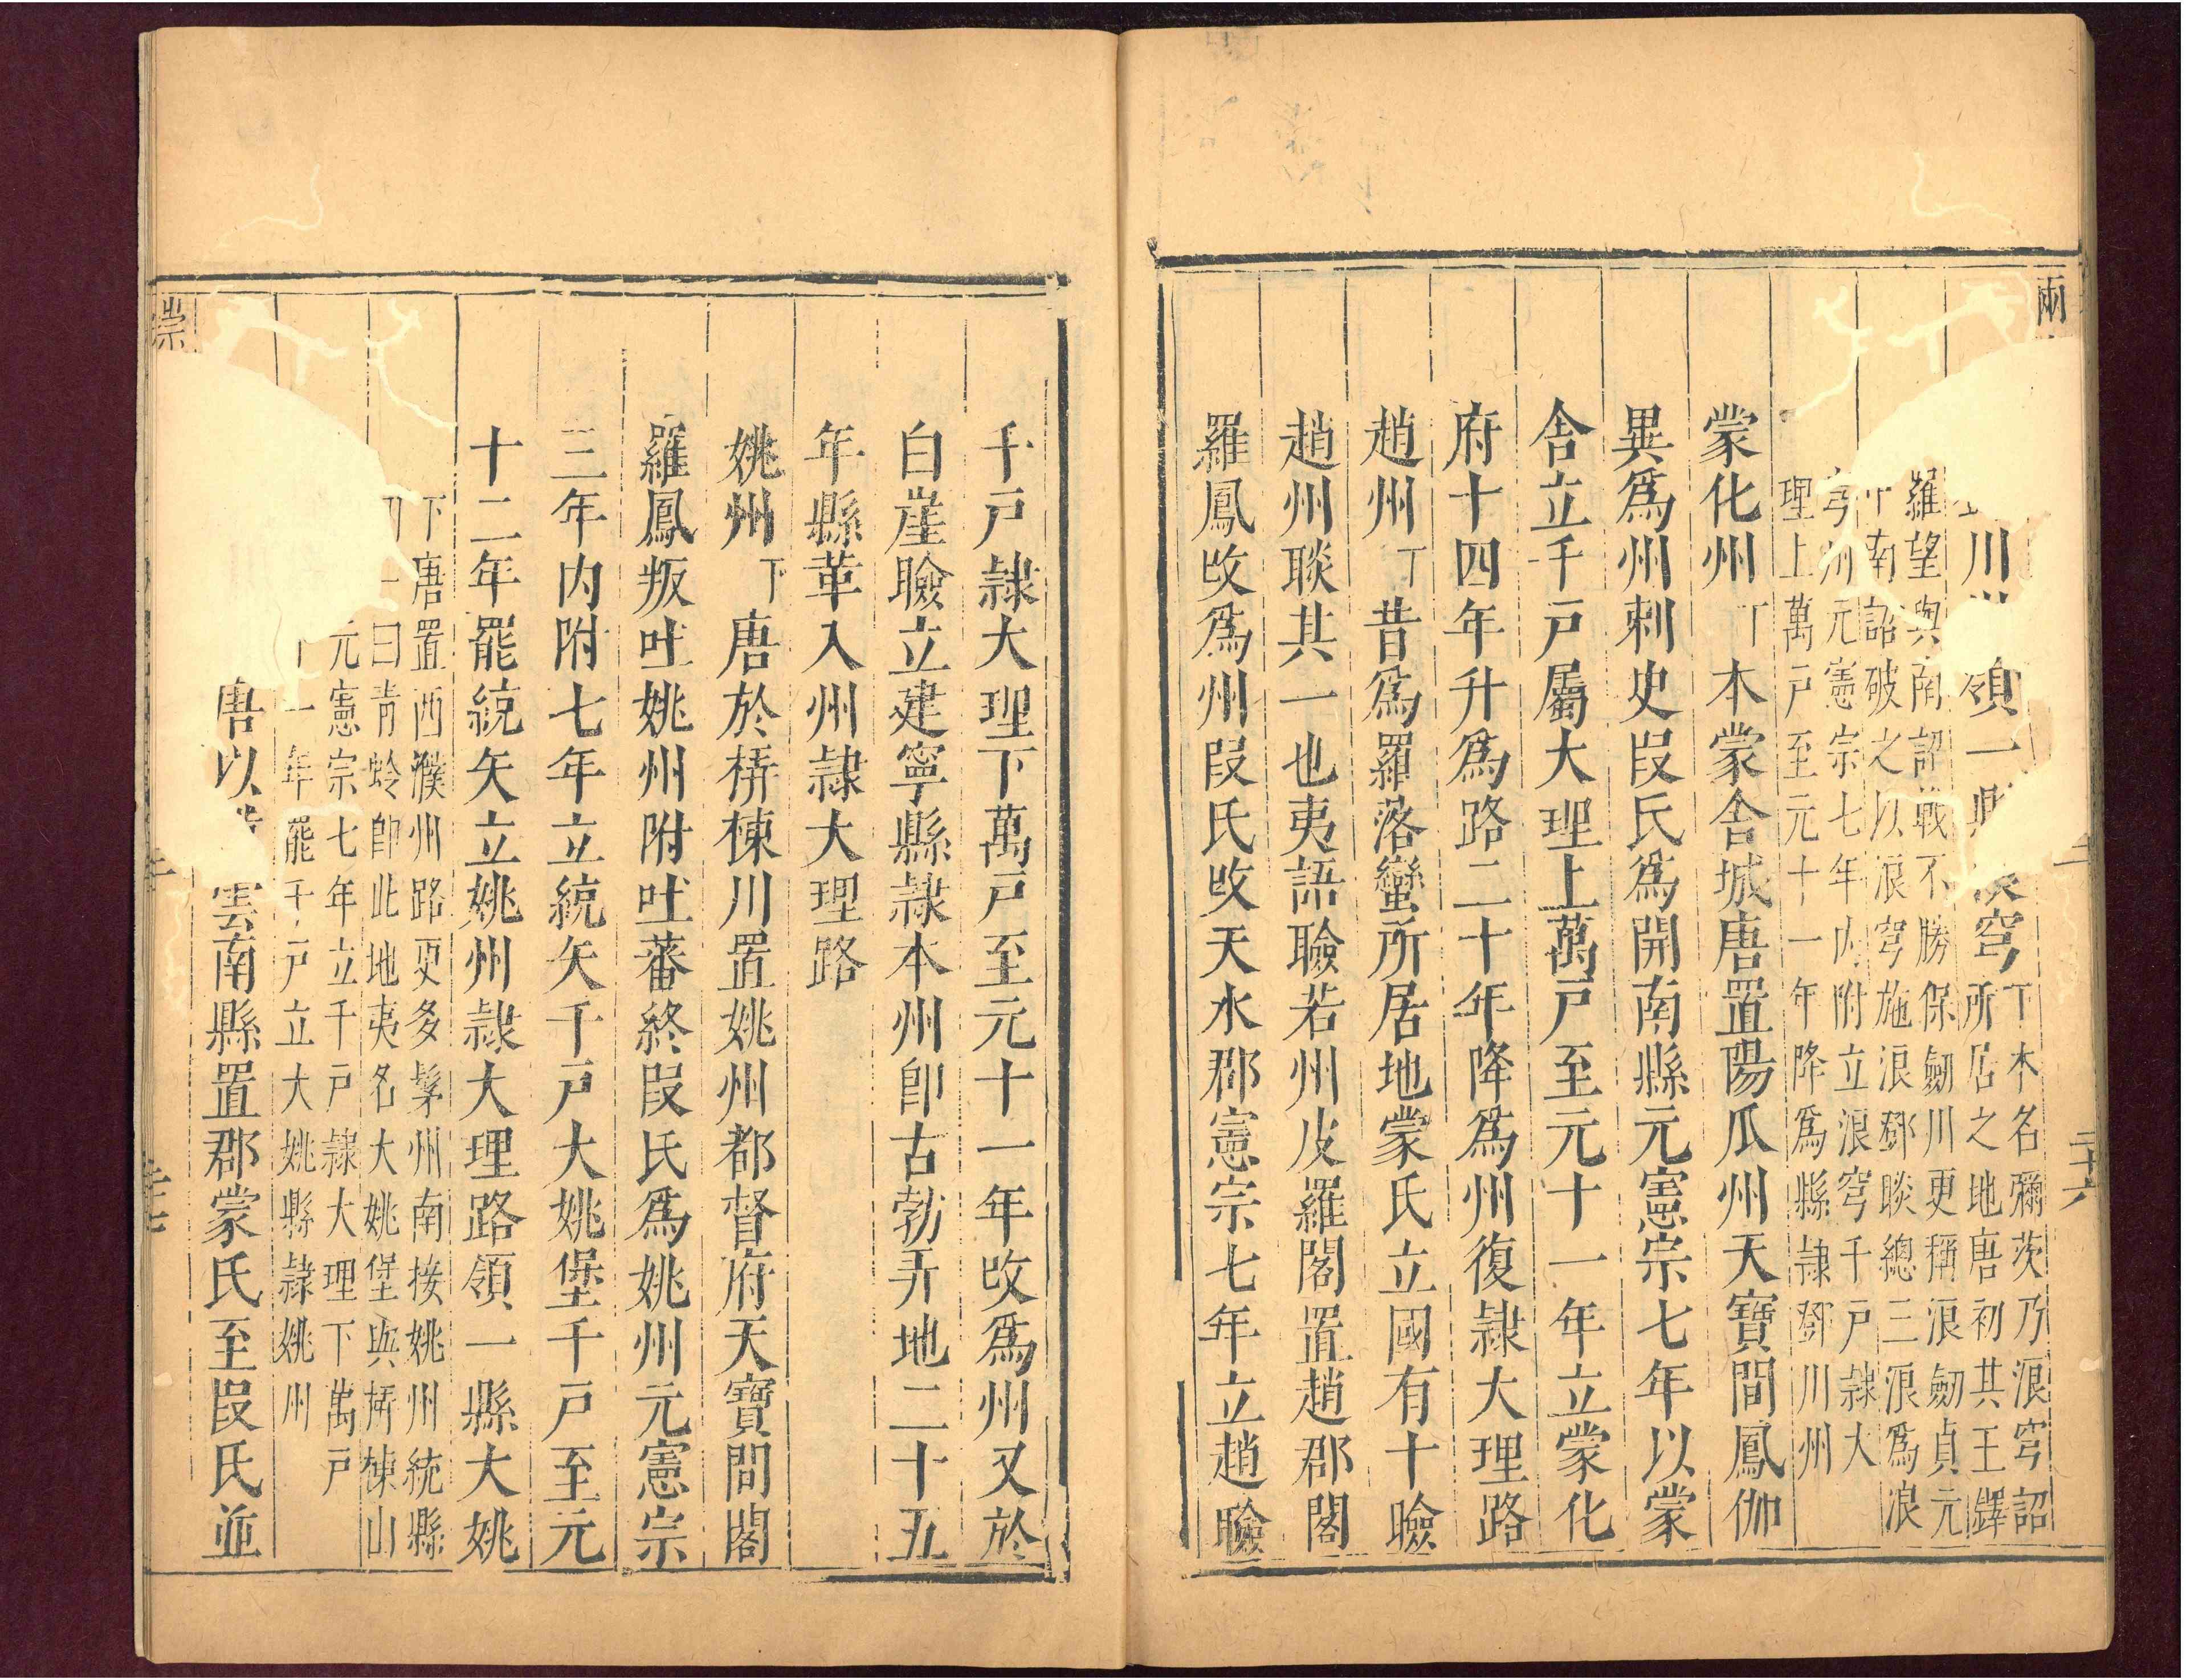 兩
二十六
川 領一縣 穹
下本名彌茨乃浪穹詔
所居之地唐初其王鐸
羅望與南詔戰不勝保劒川更稱浪劒貞元
南詔破之以浪穹施浪鄧睒總三浪爲浪
穹州元憲宗七年内附立浪穹千戸隷大
理上萬戸至元十一年降爲縣隷鄧川州
蒙化州下本蒙舍城唐置陽瓜州天寶間鳳伽
異爲州刺史段氏爲開南縣元憲宗七年以蒙
舍立千戸屬大理上萬戸至元十一年立蒙化
府十四年升爲路二十年降爲州復隷大理路
趙州下昔爲羅落蠻所居地蒙氏立國有十瞼
趙州睒其一也夷語瞼若州皮羅閣置趙郡閣
羅鳳改爲州段氏改天水郡憲宗七年立趙瞼
千戸隷大理下萬戸至元十一年改爲州又於
白崖瞼立建寧縣隷本州卽古勃弄地二十五
年縣革入州隷大理路
姚州下唐於梇棟川置姚州都督府天寶間閣
羅鳳叛吐姚州附吐蕃終段氏爲姚州元憲宗
三年内附七年立統矢千戸大姚堡千戸至元
十二年罷統矢立姚州隷大理路領一縣大姚
下唐置西濮州路更多髳州南接姚州統縣
曰靑蛉卽此地夷名大姚堡與梇棟山
元憲宗七年立千戸隷大理下萬戸
一年罷千戸立大姚縣隷姚州
唐以 雲南縣置郡蒙氏至段氏並
崇
二十七